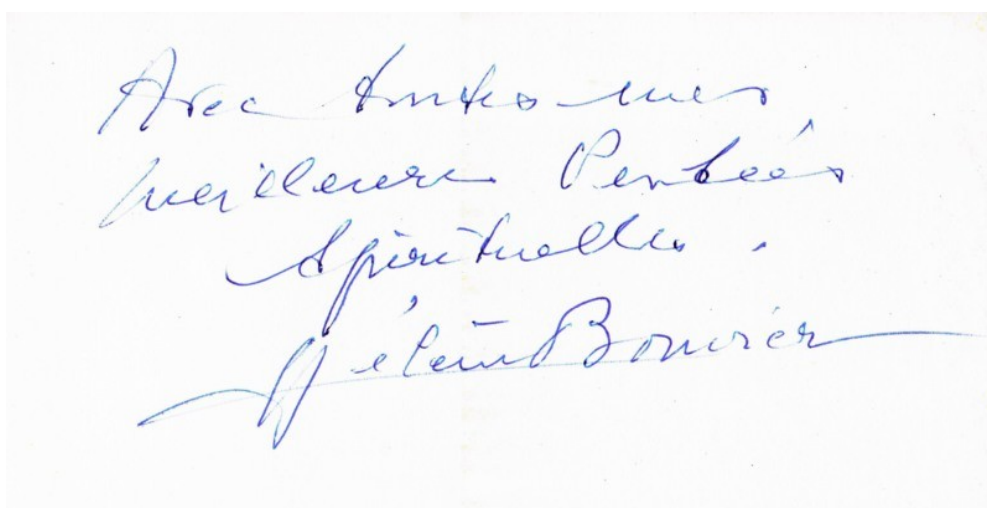 Avec toutes mes
meilleures Pensées
Spirituelles.
Hélène Bouvier